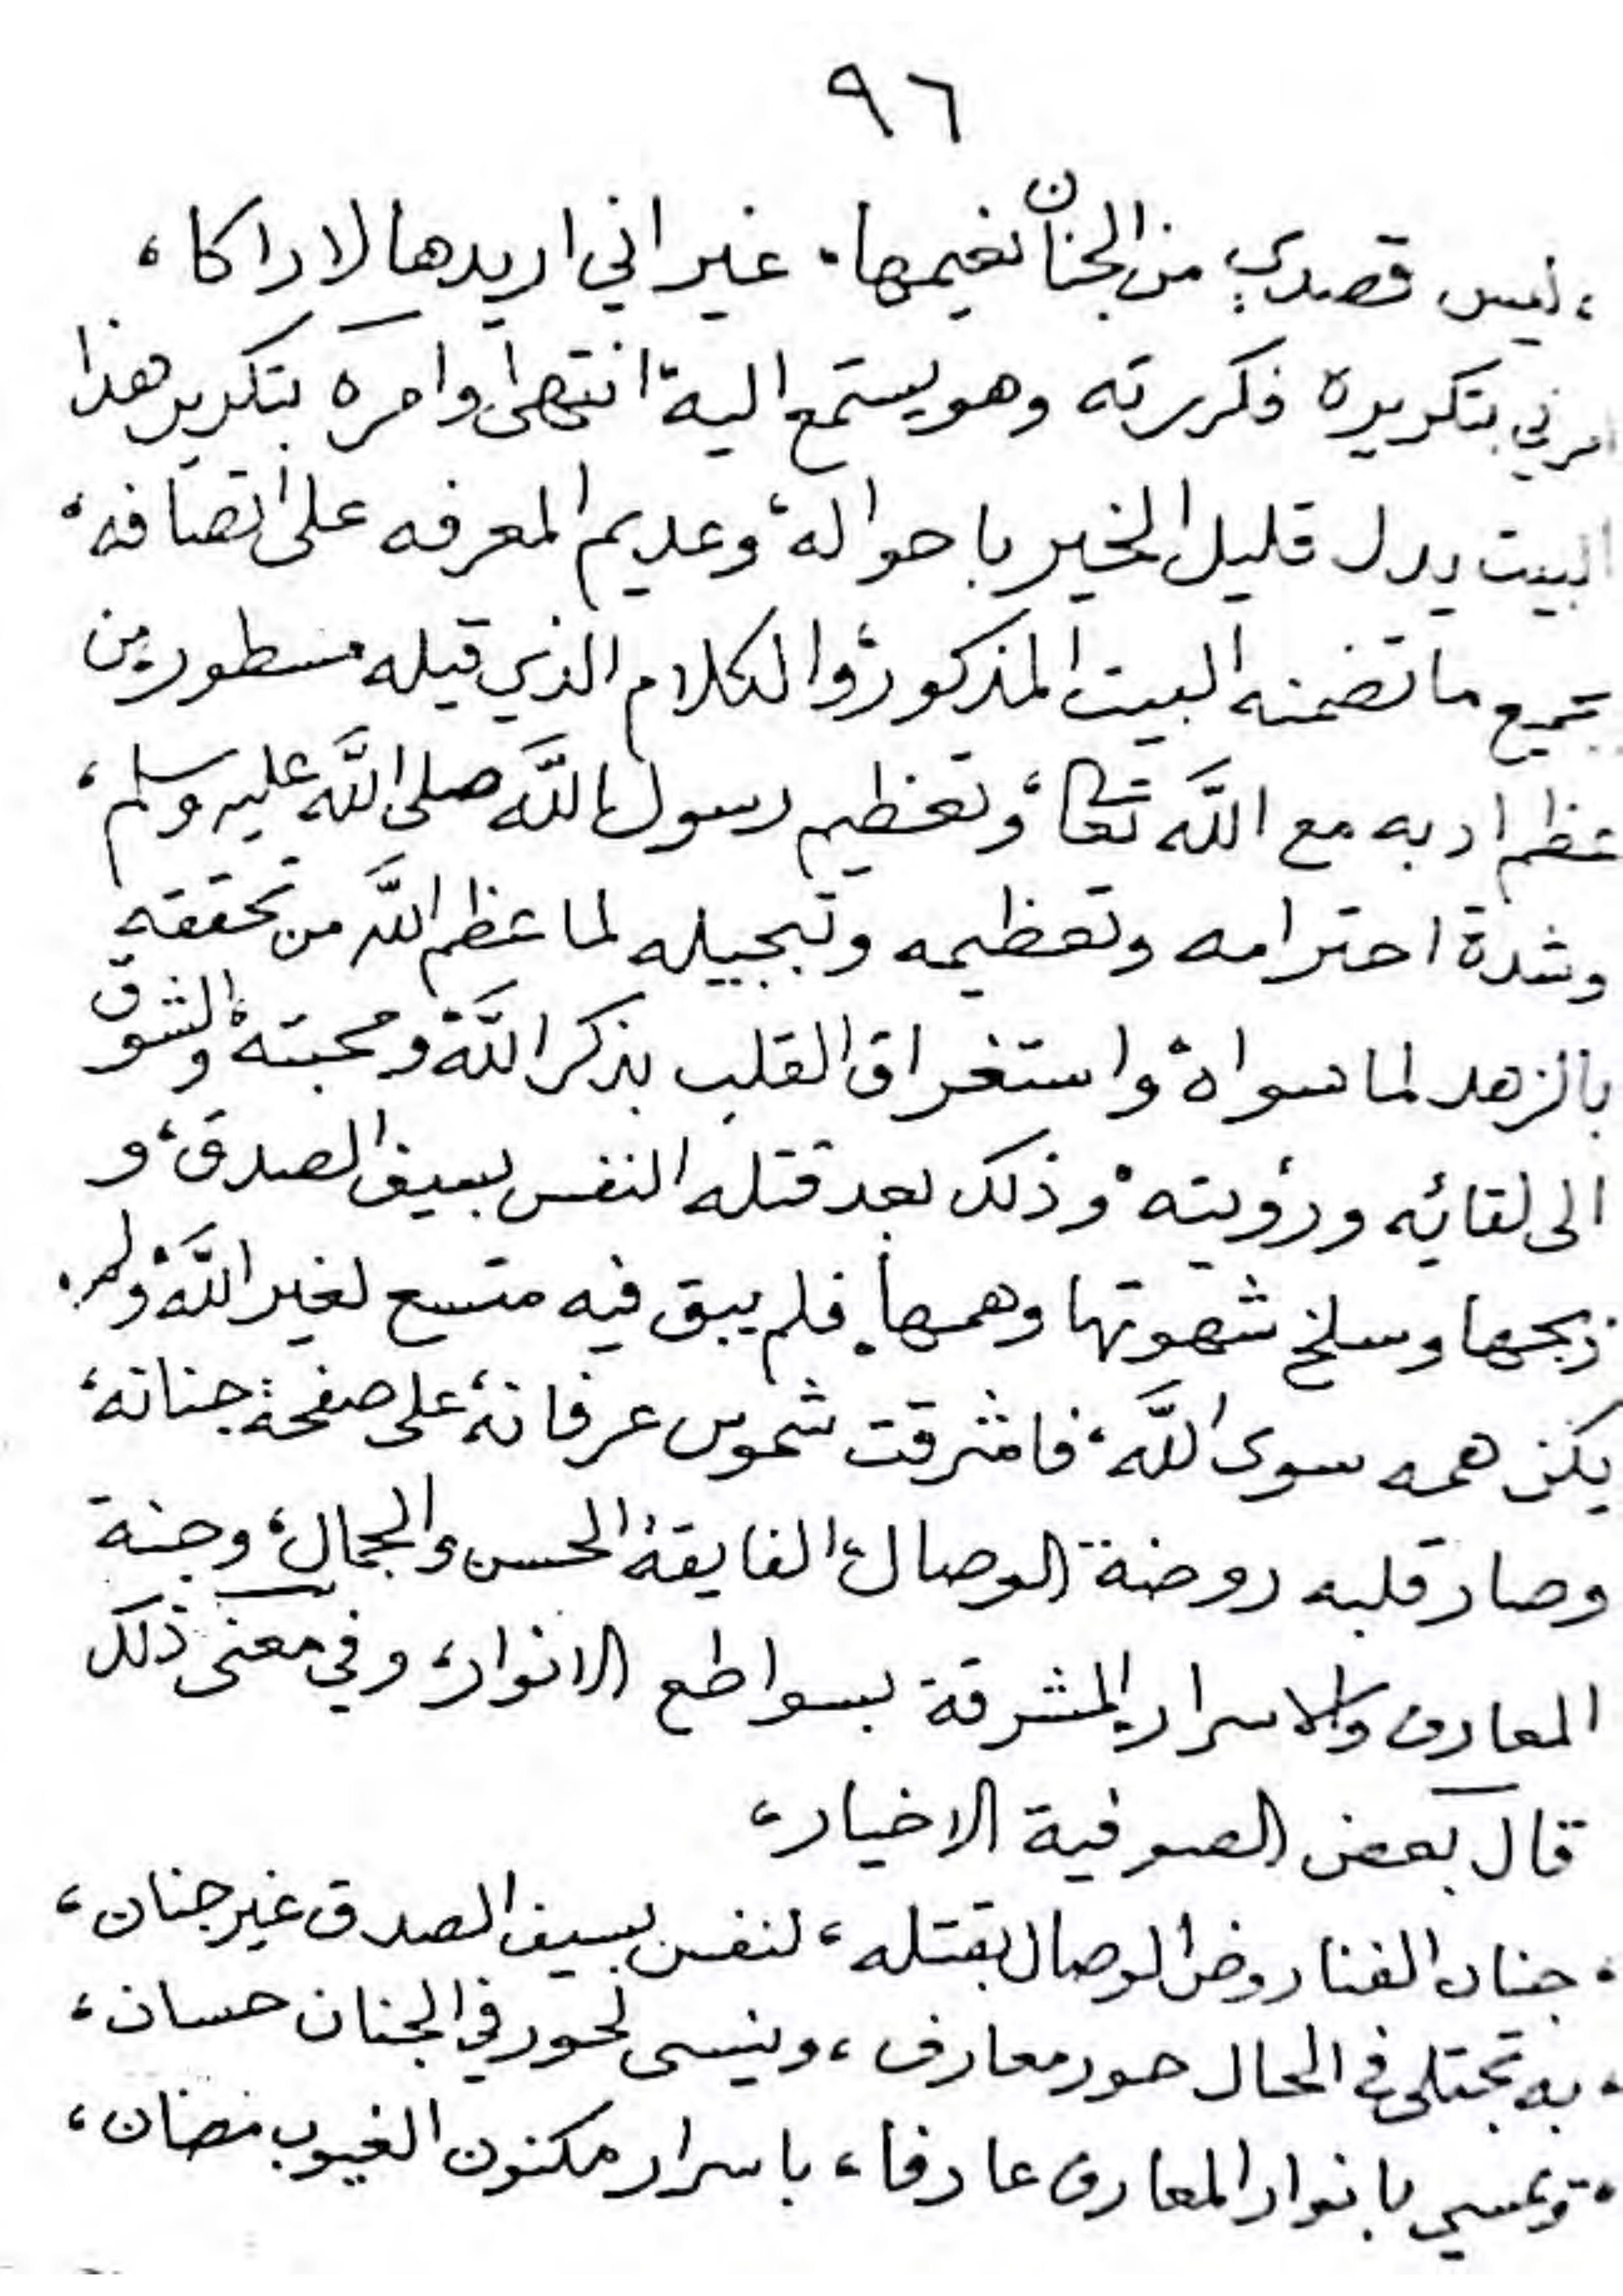 ٩٦
، ليس قصدي من الجنان نعيمها، غير اني اريدها لاراكا،
امرني بتكريره فكررته وهو يستمع اليه، انتهى وامره بتكرير هذا
البيت يدل قليل الخبر باحواله، وعديم المعرفه على اتصافه،
بجميع ما تضمنه البيت المذكور، والكلام الذي قبله مسطور من
عظم ادبه مع الله تعالى، وتعظيم رسول الله صلى الله عليه وسلم،
وشدة احترامه وتعظيمه وتبجيله لما عظم الله من تحققه
بالزهد لما سواه، واستغراق القلب بذكر الله، ومحبته، والشوق
الى لقائه ورؤيته، وذلك بعد قتله النفس بسيف الصدق، و
ذبحها وسلخ شهوتها وهمها، فلم يبق فيه متسع لغير الله، ولم
يكن همه سوى الله، فاشرقت شموس عرفانه، على صفحة جنانه،
وصار قلبه روضة الوصال، الفايقة الحسن والجمال، وجنة
المعارف والاسرار المشرقة بسواطع الانوار، وفي معنى ذلك
قال بعض الصوفية الاخيار،
، جنان الفنا روض الوصال بقتله، لنفس بسيف الصدق غير جنان،
، به تجتلى في الحال حور معارف، وينسى لحور في الجنان حسان،
، وتمسي بانوار المعارف عارفا، باسرار مكنون الغيوب مصان،